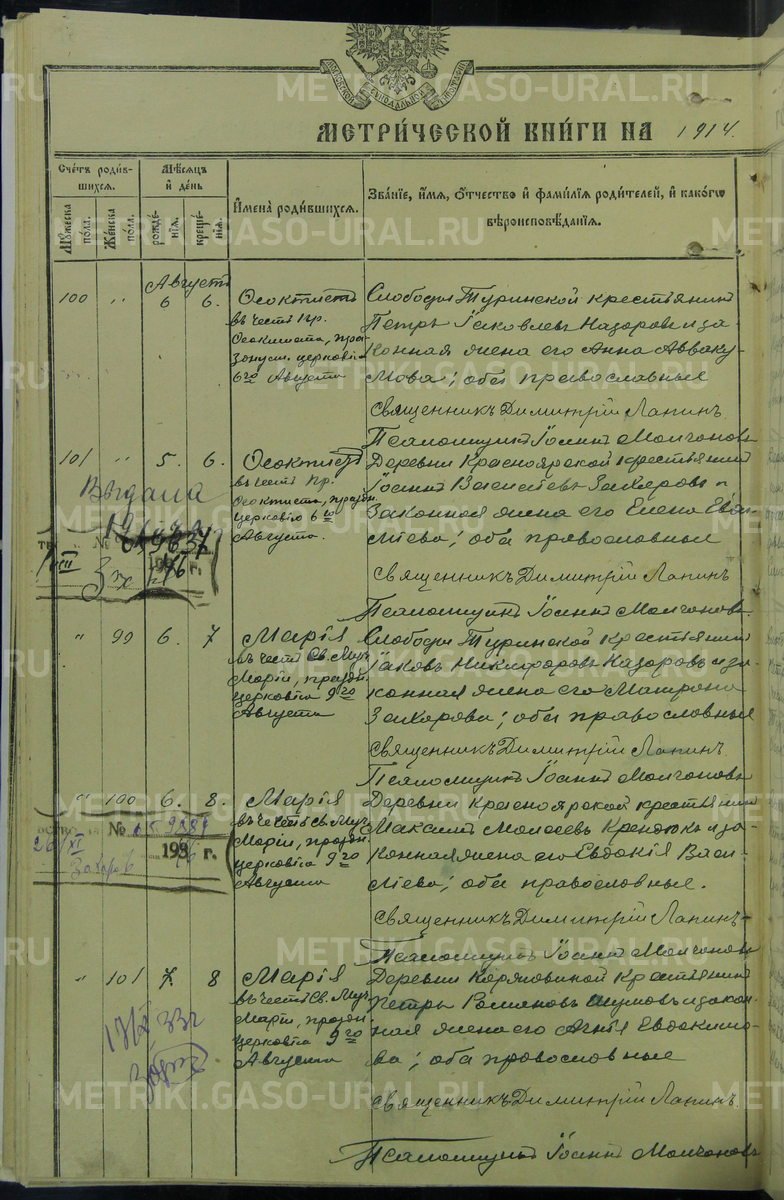 МОСКОВСКОЙ СѴНОДАЛЬНОЙ ТИПОГРАФІИ
МЕТРИ́ЧЕСКОЙ КНИ́ГИ НА 1914.
Сче́тъ роди́в-
шихся.
Мѣ́сяцъ
и҆ де́нь
И҆мена̀ роди́вшихся.
Зва́нїе, и҆́мя, ѻ҆́тчество и҆ фами́лїя роди́телей, и҆ како́гѡ
вѣроисповѣ́данїя.
Мꙋ́жеска по́ла.
Же́нска по́ла.
рожде́-
нїѧ.
креще́-
нїѧ.
Августъ
100 " 6 6. Ѳеоктистъ
въ честь пр.
Ѳеоктиста, праз-
днуем. церковію
6го Августа
Слободы Туринской крестьянинъ
Петръ Іаковлевъ Назаровъ и за-
конная жена его Анна Авваку-
мова; оба православные
Священникъ Димитрій Лапинъ
Псаломщикъ Іоаннъ Молчановъ
101 " 5. 6. Ѳеоктистъ
въ честь пр.
Ѳеоктиста, праздн.
церковію 6го
Августа.
Деревни Красноярской крестьянинъ
Іоаннъ Васильевъ Захаровъ и
законная жена его Елена Евва-
лиева; оба православные
Священникъ Димитрій Лапинъ
Псаломщикъ Іоаннъ Молчановъ
Выдана
№
194 6 г.
" 99 6. 7 Марія
въ честь Св. Муч.
Маріи, праздн.
церковію 9го
Августа
Слободы Туринской крестьянинъ
Іаковъ Никифоровъ Назаровъ и за-
конная жена его Матрона
Захарова; оба православные
Священникъ Димитрій Лапинъ
Псаломщикъ Іоаннъ Молчановъ
" 100 6. 8. Марія
въ честь Св. Муч.
Маріи, праздн.
церковію 9го
Августа
Деревни Красноярской крестьянинъ
Максимъ Моисеевъ и за-
конная жена его Евдокія Васи-
лиева; оба православные.
Священникъ Димитрій Лапинъ
Псаломщикъ Іоаннъ Молчановъ
№
26/XI 193 г.
" 101 7. 8 Марія
въ честь Св. Муч.
Маріи, праздн.
церковію 9го
Августа
Деревни крестьянинъ
Петръ Романовъ Шумовъ и закон-
ная жена его Агнія Евдокимо-
ва; оба православные
Священникъ Димитрій Лапинъ.
Псаломщикъ Іоаннъ Молчановъ
METRIKI.GASO-URAL.RU